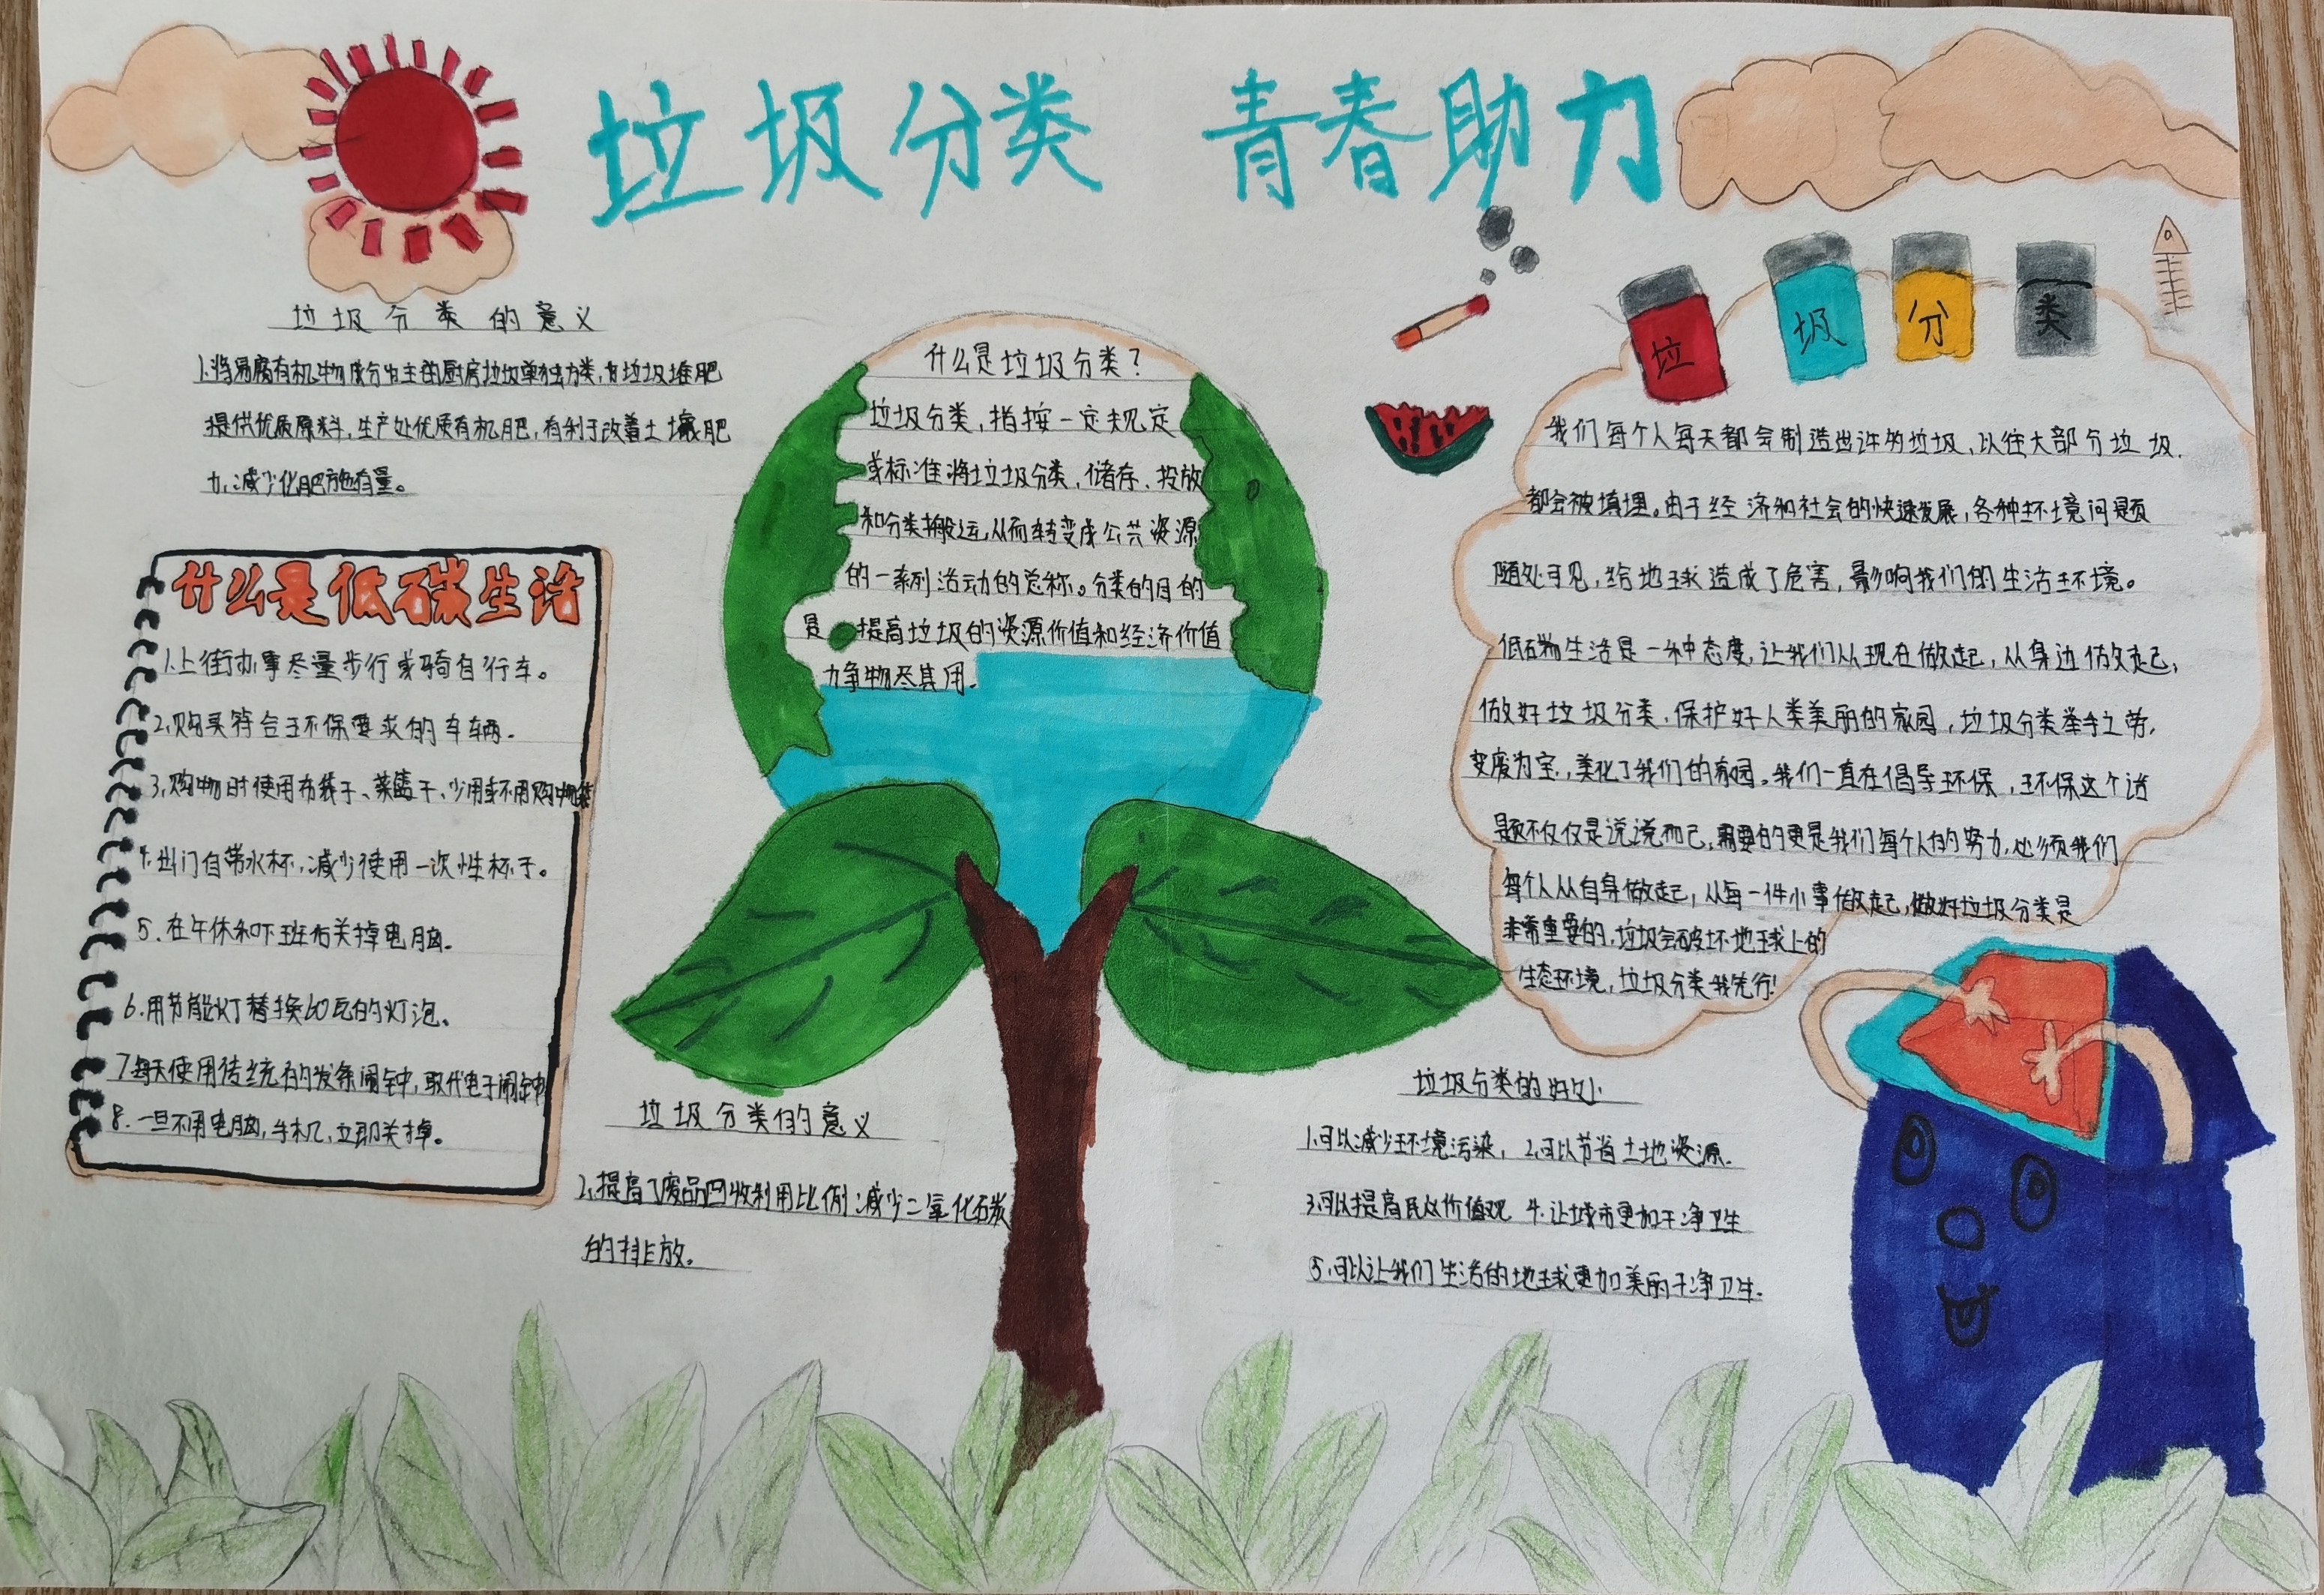 垃圾分类 青春助力
垃圾分类的意义
1.将易腐有机物成分为主的厨房垃圾单独分类,为垃圾堆肥
提供优质原料,生产处优质有机肥,有利于改善土壤肥
力,减少化肥施有量。
什么是低碳生活
1.上街办事尽量步行或骑自行车。
2.购买符合环保要求的车辆.
3.购物时使用布袋子、菜篮子、少用或不用购物袋
4.出门自带水杯,减少使用一次性杯子。
5.在午休和下班后关掉电脑.
6.用节能灯替换60瓦的灯泡、
7.每天使用传统的发条闹钟,取代电子闹钟
8.一旦不用电脑,手机,立即关掉。
什么是垃圾分类?
垃圾分类,指按一定规定
或标准将垃圾分类,储存、投放
和分类搬运,从而转变成公共资源
的一系列活动的总称。分类的目的
是提高垃圾的资源价值和经济价值
力争物尽其用.
垃圾分类的意义
2.提高了废品回收利用比例减少二氧化碳
的排放。
垃圾分类
我们每个人每天都会制造出许多垃圾,以往大部分垃圾.
都会被填埋。由于经济和社会的快速发展,各种环境问题
随处可见,给地球造成了危害,影响我们的生活环境。
低碳生活是一种态度,让我们从现在做起,从身边做起,
做好垃圾分类,保护好人类美丽的家园,垃圾分类举手之劳,
变废为宝,美化了我们的家园。我们一直在倡导环保,环保这个话
题不仅仅是说说而已,需要的更是我们每个人的努力,必须我们
每个人从自身做起,从每一件小事做起,做好垃圾分类是
非常重要的,垃圾会破坏地球上的
生态环境,垃圾分类我先行!
垃圾分类的好处
1.可以减少环境污染, 2.可以节省土地资源.
3.可以提高民众价值观 4.让城市更加干净卫生
5.可以让我们生活的地球更加美丽干净卫生.